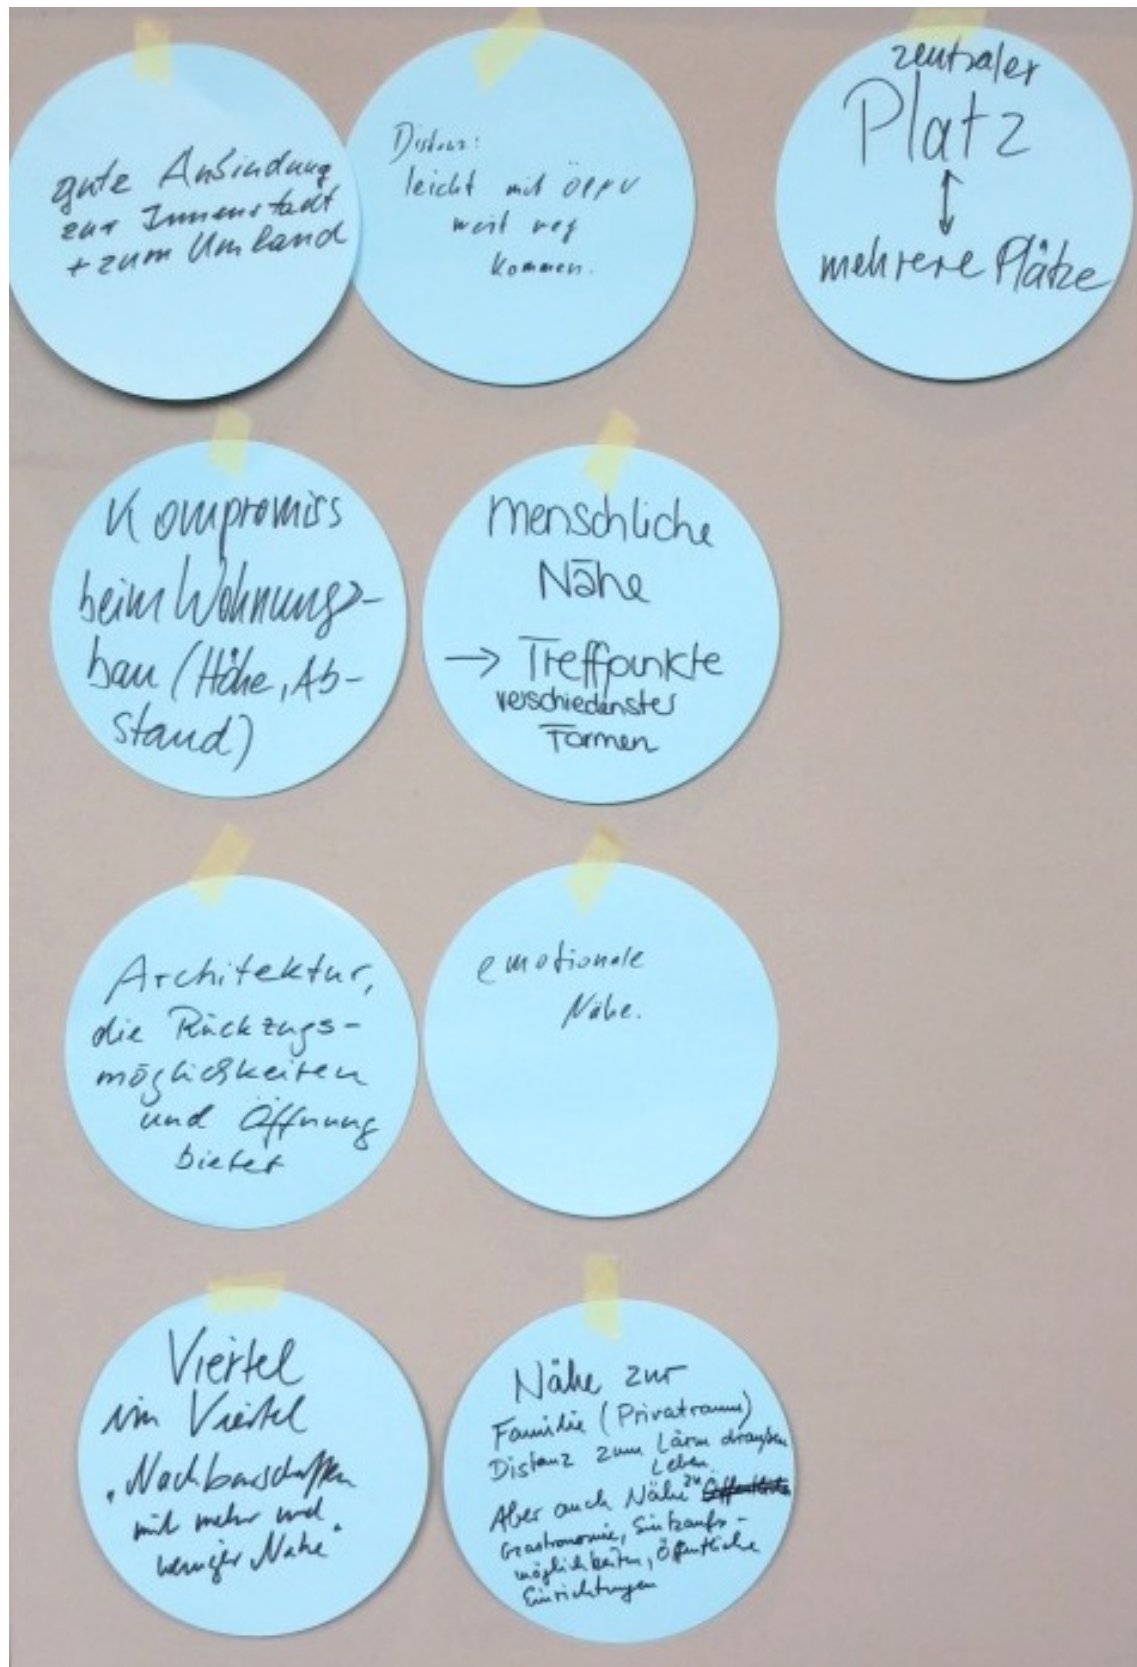 gute Anbindung
zur Innenstadt
+ zum Umland
Distanz:
leicht mit ÖPPV
weit weg
kommen.
zentraler
Platz
↕
mehrere Plätze
Kompromiss
beim Wohnungs-
bau (Höhe, Ab-
stand)
menschliche
Nähe
→ Treffpunkte
verschiedenster
Formen
Architektur,
die Rückzugs-
möglichkeiten
und Öffnung
bietet
emotionale
Nähe.
Viertel
im Viertel
"Nachbarschaften
mit mehr und
weniger Nähe"
Nähe zur
Familie (Privatraum)
Distanz zum Lärm draußen
Leben
Aber auch Nähe zu
Gastronomie, Einkaufs-
möglichkeiten, öffentliche
Einrichtungen